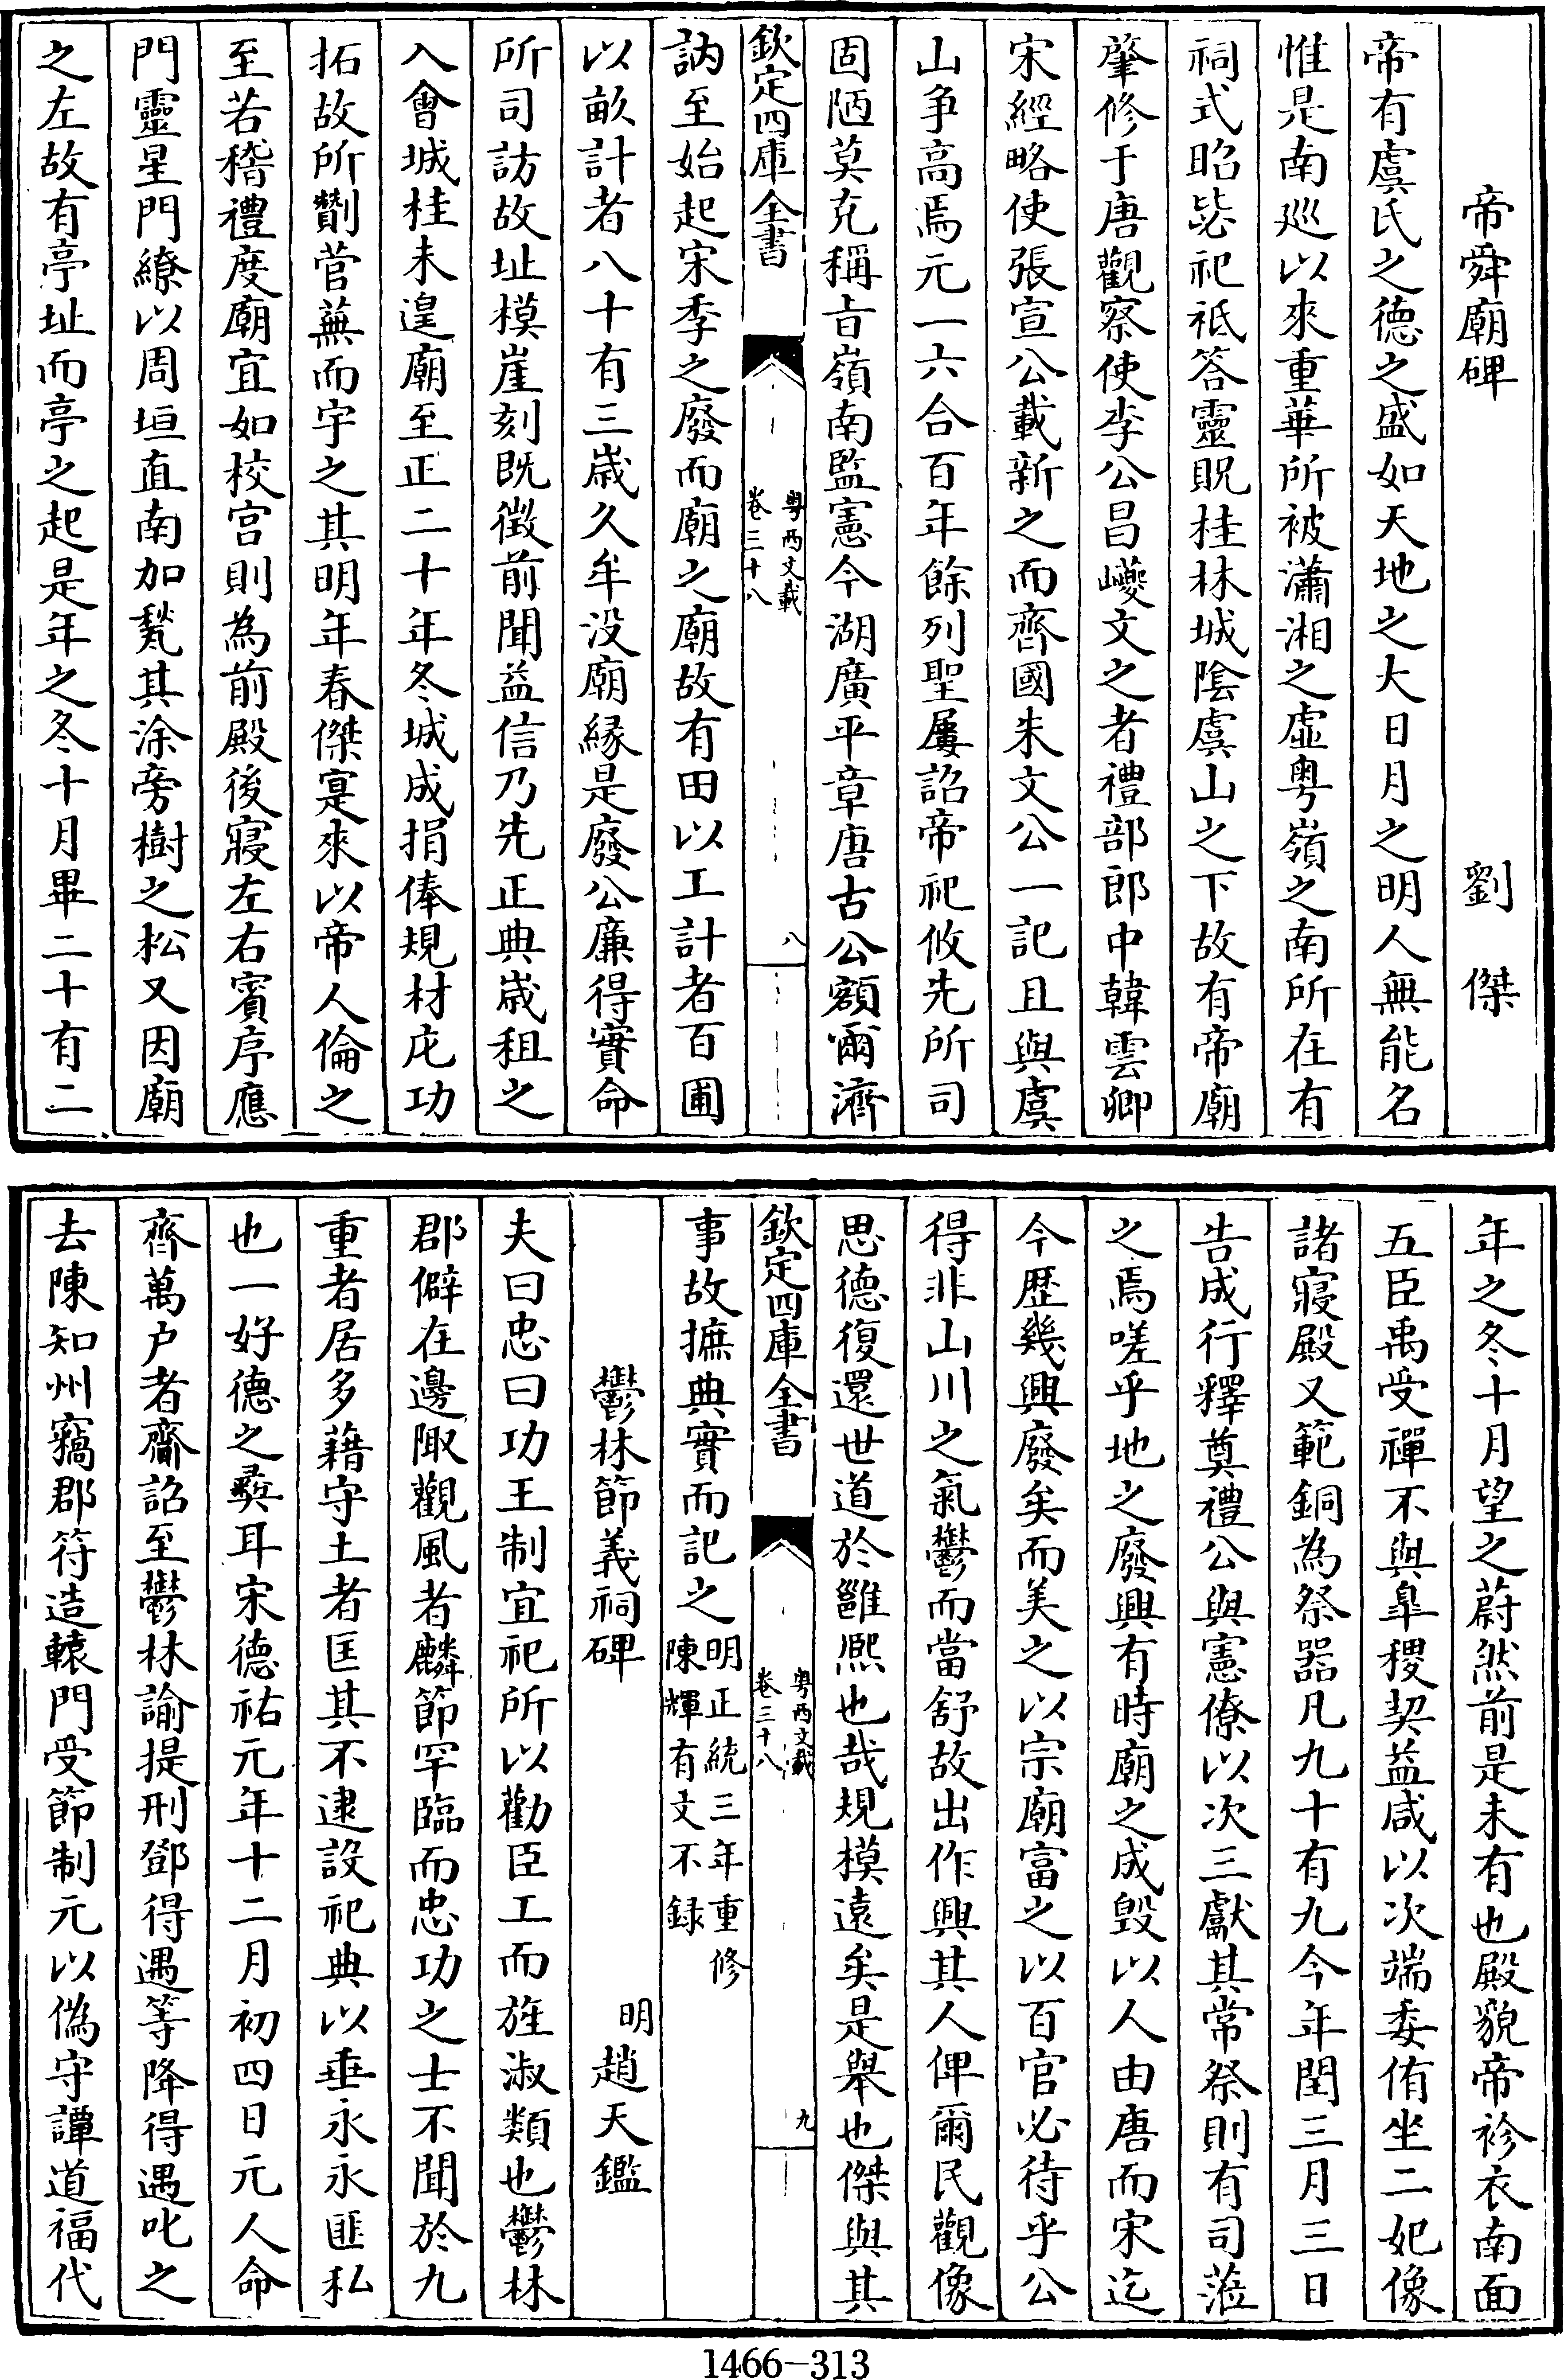 帝舜廟碑　劉傑
帝有虞氏之德之盛如天地之大日月之明人無能名
惟是南廵以來重華所被瀟湘之虛粤嶺之南所在有
祠式昭毖祀祗答靈貺桂林城陰虞山之下故有帝廟
肇修于唐觀察使李公昌巙文之者禮部郎中韓雲卿
宋經略使張宣公載新之而齊國朱文公一記且與虞
山争高焉元一六合百年餘列聖屢詔帝祀攸先所司
固陋莫克稱㫖嶺南監憲今湖廣平章唐古公額爾濟
欽定四庫全書　粤西文載　卷三十八　八
訥至始起宋季之廢而廟之廟故有田以工計者百圃
以畝計者八十有三歳久牟没廟縁是廢公廉得實命
所司訪故址模崖刻既徴前聞益信乃先正典歳租之
入會城桂未遑廟至正二十年冬城成捐俸規材庀功
拓故所㔉菅蕪而宇之其明年春傑寔來以帝人倫之
至若稽禮度廟宜如校宫則為前殿後寢左右賓序應
門靈星門繚以周垣直南加甃其涂旁樹之松又因廟
之左故有亭址而亭之起是年之冬十月畢二十有二
年之冬十月望之蔚然前是未有也殿貌帝袗衣南面
五臣禹受禪不與臯稷契益咸以次端委侑坐二妃像
諸寢殿又範銅為祭器凡九十有九今年閏三月三日
告成行釋奠禮公與憲僚以次三獻其常祭則有司蒞
之焉嗟乎地之廢興有時廟之成毁以人由唐而宋迄
今歴幾興廢矣而美之以宗廟富之以百官必待乎公
得非山川之氣鬱而當舒故出作興其人俾爾民觀像
思德復還世道於雝熈也哉規模遠矣是舉也傑與其
欽定四庫全書　粤西文載　卷三十八　九
事故摭典實而記之明正統三年重修陳輝有文不録
鬱林節義祠碑　明趙天鑑
夫曰忠曰功王制宜祀所以勸臣工而旌淑類也鬱林
郡僻在邊陬觀風者麟節罕臨而忠功之士不聞於九
重者居多藉守土者匡其不逮設祀典以垂永永匪私
也一好德之彜耳宋德祐元年十二月初四日元人命
齊萬户者齎詔至鬱林諭提刑鄧得遇等降得遇叱之
去陳知州竊郡符造轅門受節制元以偽守譚道福代
1466-313